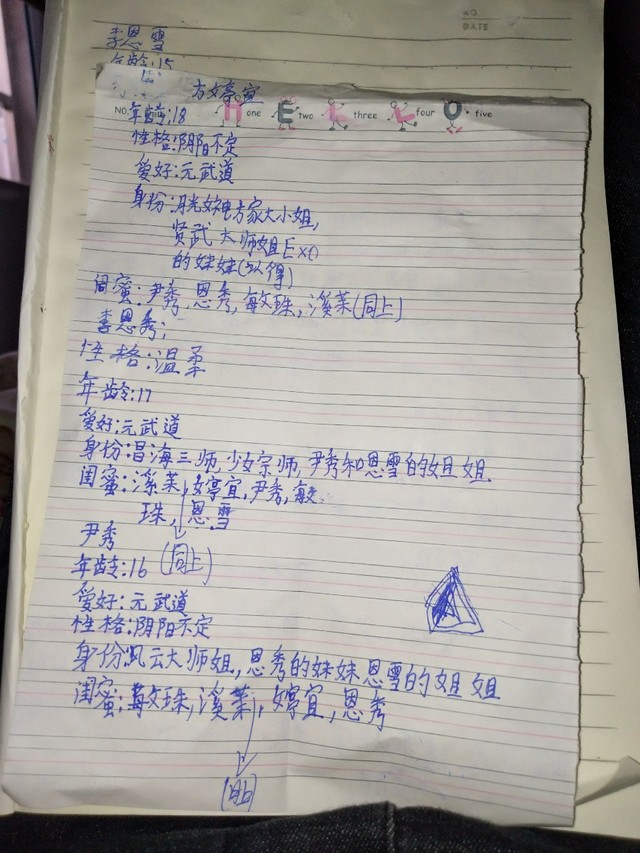 NO.
DATE
李恩雪
年龄:15
方婷宜
NO.
HELLO
one two three four five
年龄:18
性格:阴阳不定
爱好:元武道
身份:月光女神方家大小姐,
贤武大师姐Exo
的妹妹(认得)
闺蜜:尹秀,恩秀,敏珠,溪茉(同上)
李恩秀;
性格:温柔
年龄:17
爱好:元武道
身份:昌海三师,少女宗师,尹秀和恩雪的姐姐.
闺蜜:溪茉,婷宜,尹秀,敏
珠,恩雪
尹秀
年龄:16 (同上)
爱好:元武道
性格:阴阳不定
身份:风云大师姐,恩秀的妹妹恩雪的姐姐
闺蜜:敏珠,溪茉,婷宜,恩秀
(同上)